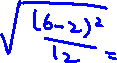 √((6-2)²/12) =